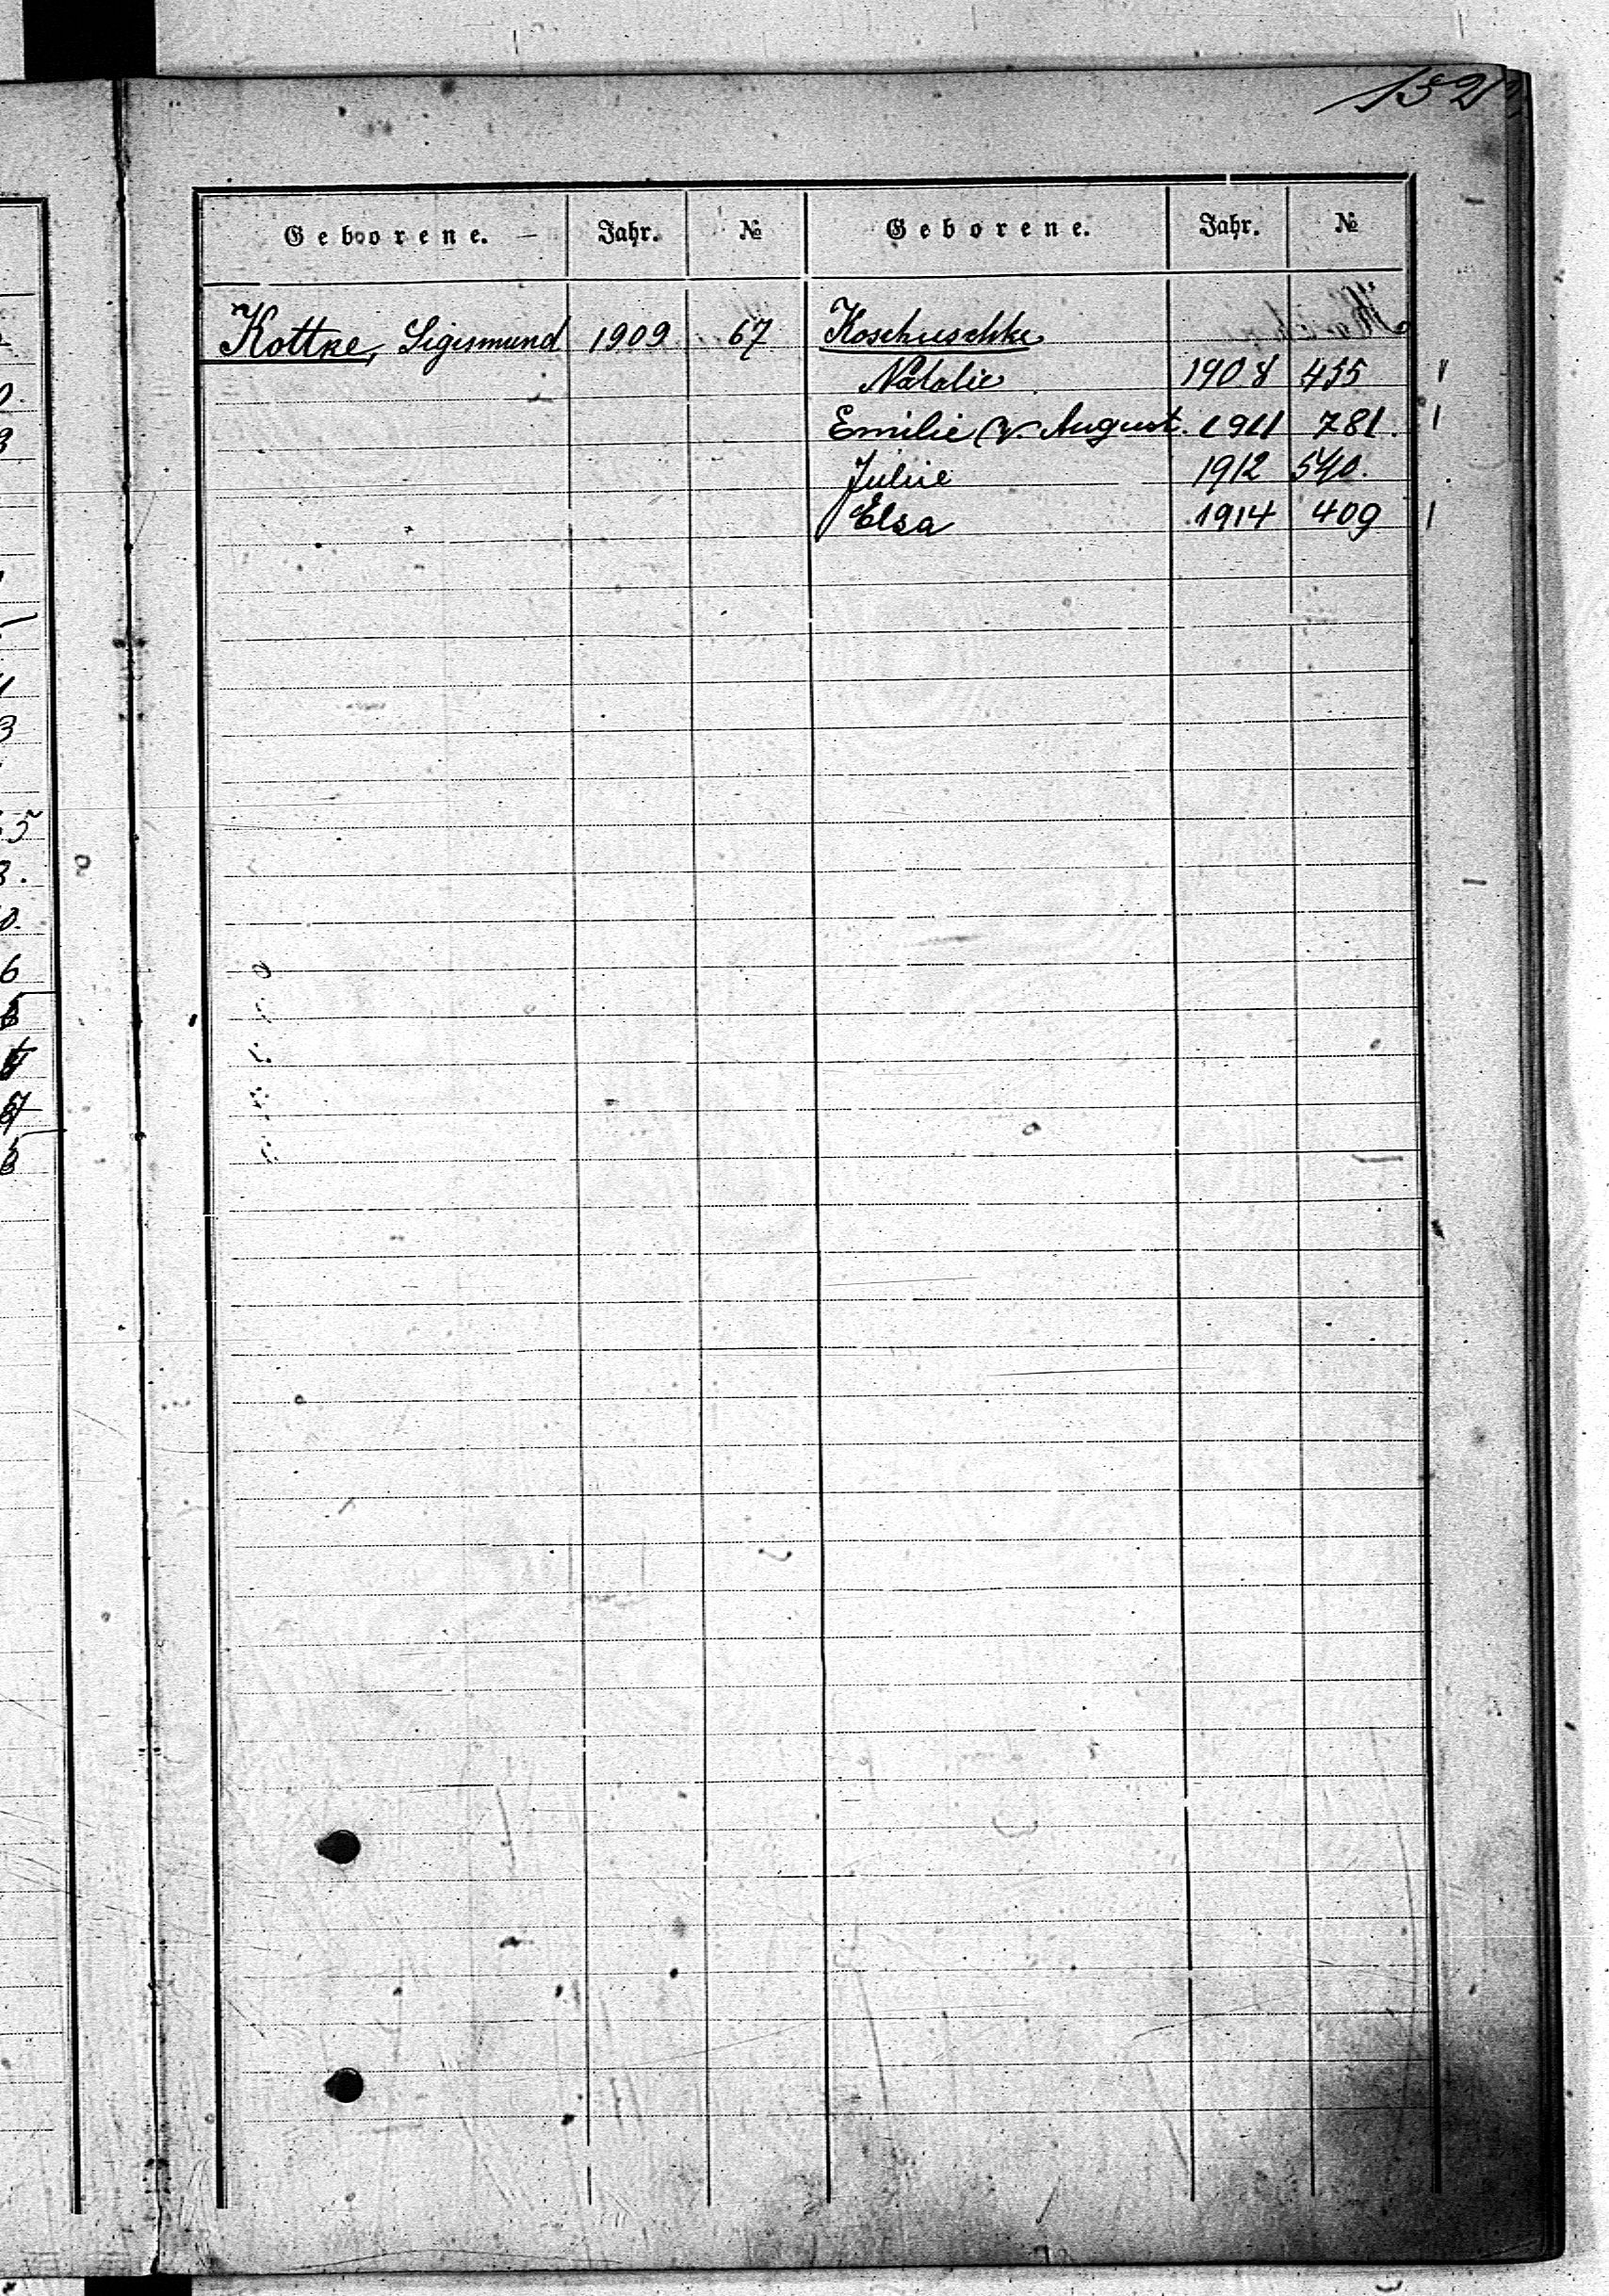 132
Geborene. Jahr. № Geborene. Jahr. №
Kottke, Sigismund 1909 67 Koschuschke
Natalie 1908 455
Emilie (v. August. 1911 781.
Julie 1912 540.
Elsa 1914 409